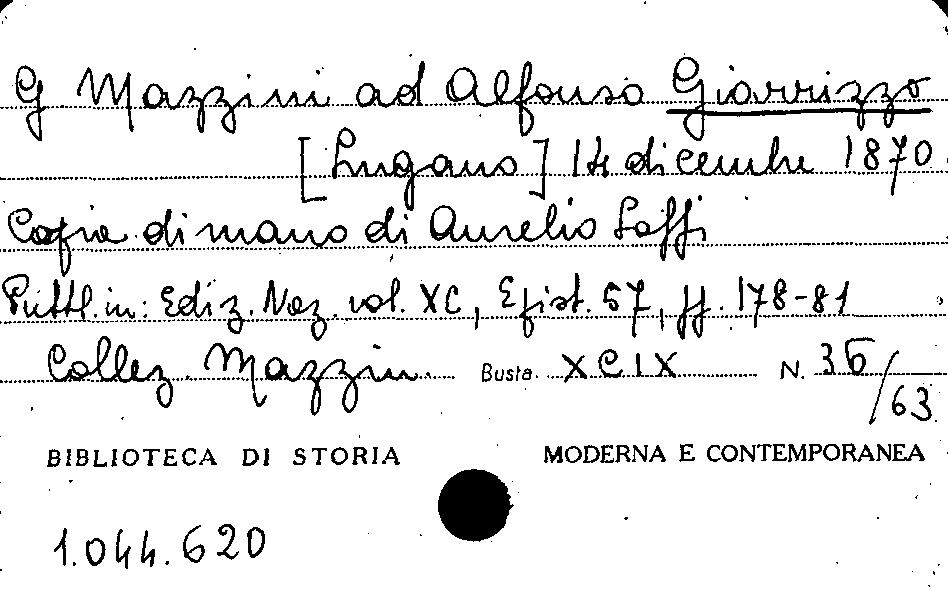 G Mazzini ad Alfonso Giarrizzo
[Lugano] 14 dicembre 1870
Copia di mano di Aurelio Saffi
Pubbl. in: Ediz. Naz. vol. XC, Epist. 57, pp. 178-81
Collez. Mazzini Busta XCIX N. 36/63
BIBLIOTECA DI STORIA MODERNA E CONTEMPORANEA
1.044.620